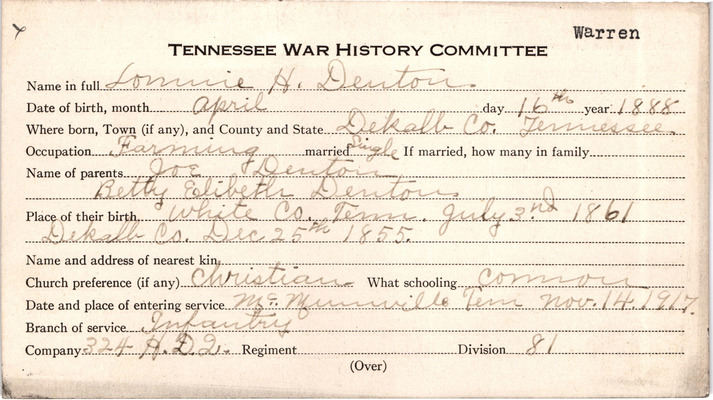 Warren
TENNESSEE WAR HISTORY COMMITTEE
Name in full Lonnie H. Denton
Date of birth, month April day 16th year 1888
Where born, Town (if any), and County and State Dekalb Co. Tennessee.
Occupation Farming married Single If married, how many in family
Name of parents Joe Denton
Betty Elibeth Denton
Place of their birth White Co. Tenn. July 3rd 1861
Dekalb Co. Dec 25th 1855.
Name and address of nearest kin
Church preference (if any) Christian What schooling common
Date and place of entering service Mc Minnville Tenn Nov. 14. 1917.
Branch of service Infantry
Company 324 H.D.Q. Regiment Division 81
(Over)